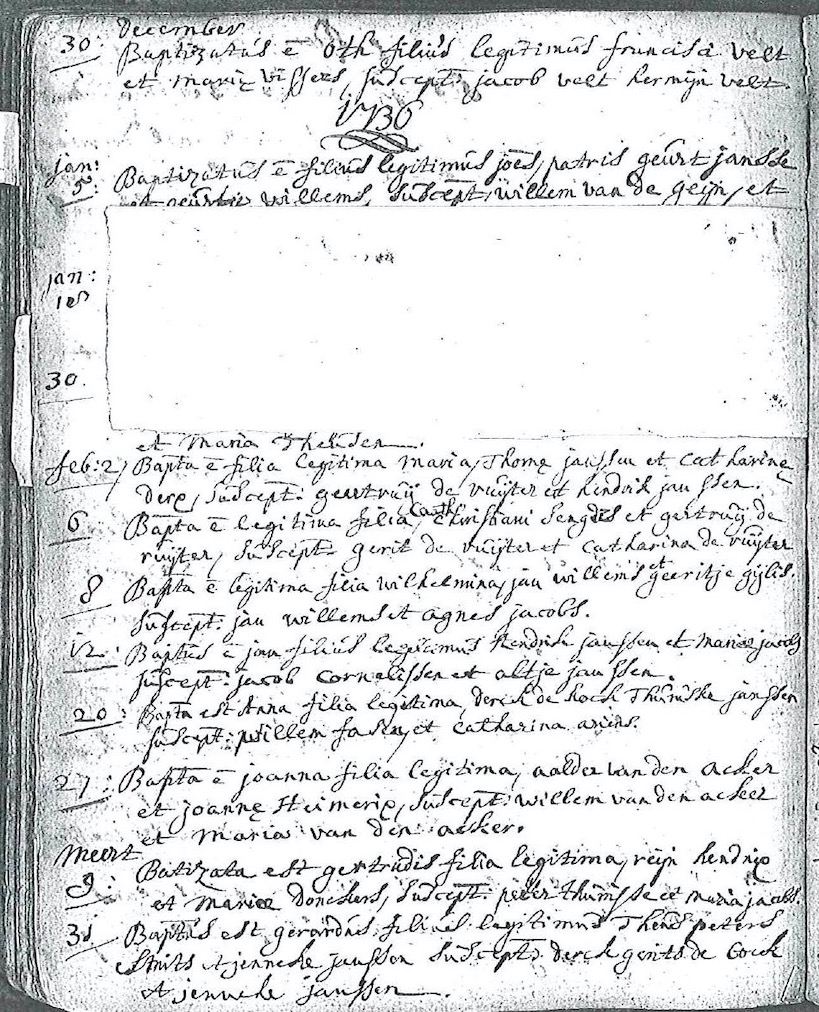 december
30. Baptizatus ē Oth filius legitimus francisci velt
et mariæ vissers, suscept: jacob velt hermijn velt.
1736
jan: 5. Baptizatus ē filius legitimus joēs, patris geurt janssē
willems, suscept: willem van de geijn, et
jan: 18
30.
et Maria Theusen.
feb: 2, Bapta ē filia legitima maria, Thomę janssen et catharinę
derx, suscept: geertruij de ruijter et hendrik janssen.
6 Bapta ē legitima filia Cath: christiani sengers et gertruij de
ruijter, suscept: gerit de ruijter et catharina de ruijter
8 Bapta ē legitima filia wilhelmina, jan willems et geeritje gijlis.
suscept: jan willems et agnes jacobs.
12. Baptūs ē jan filius legitimus Hendrik janssen et mariæ jacobs
suscept: jacob Cornelissen et altje janssen.
20: Bapta est Anna filia legitima, derck de kock Thuniske janssen
suscept: willem et catharina ariens.
27: Bapta ē joanna filia legitima, aalder van den acker
et joannę Heimerix, suscept: willem van den acker
et maria van den acker.
Meert
9: Batizata est gertrudis filia legitima, reijn hendrix
et mariæ Donckers, suscept: peter thunisse et maria jacobs.
31 Baptūs est gerardus filius legitimus Theūs peters
smits et jenneke janssen suscept: derck gerits de cock
et jenneke janssen.